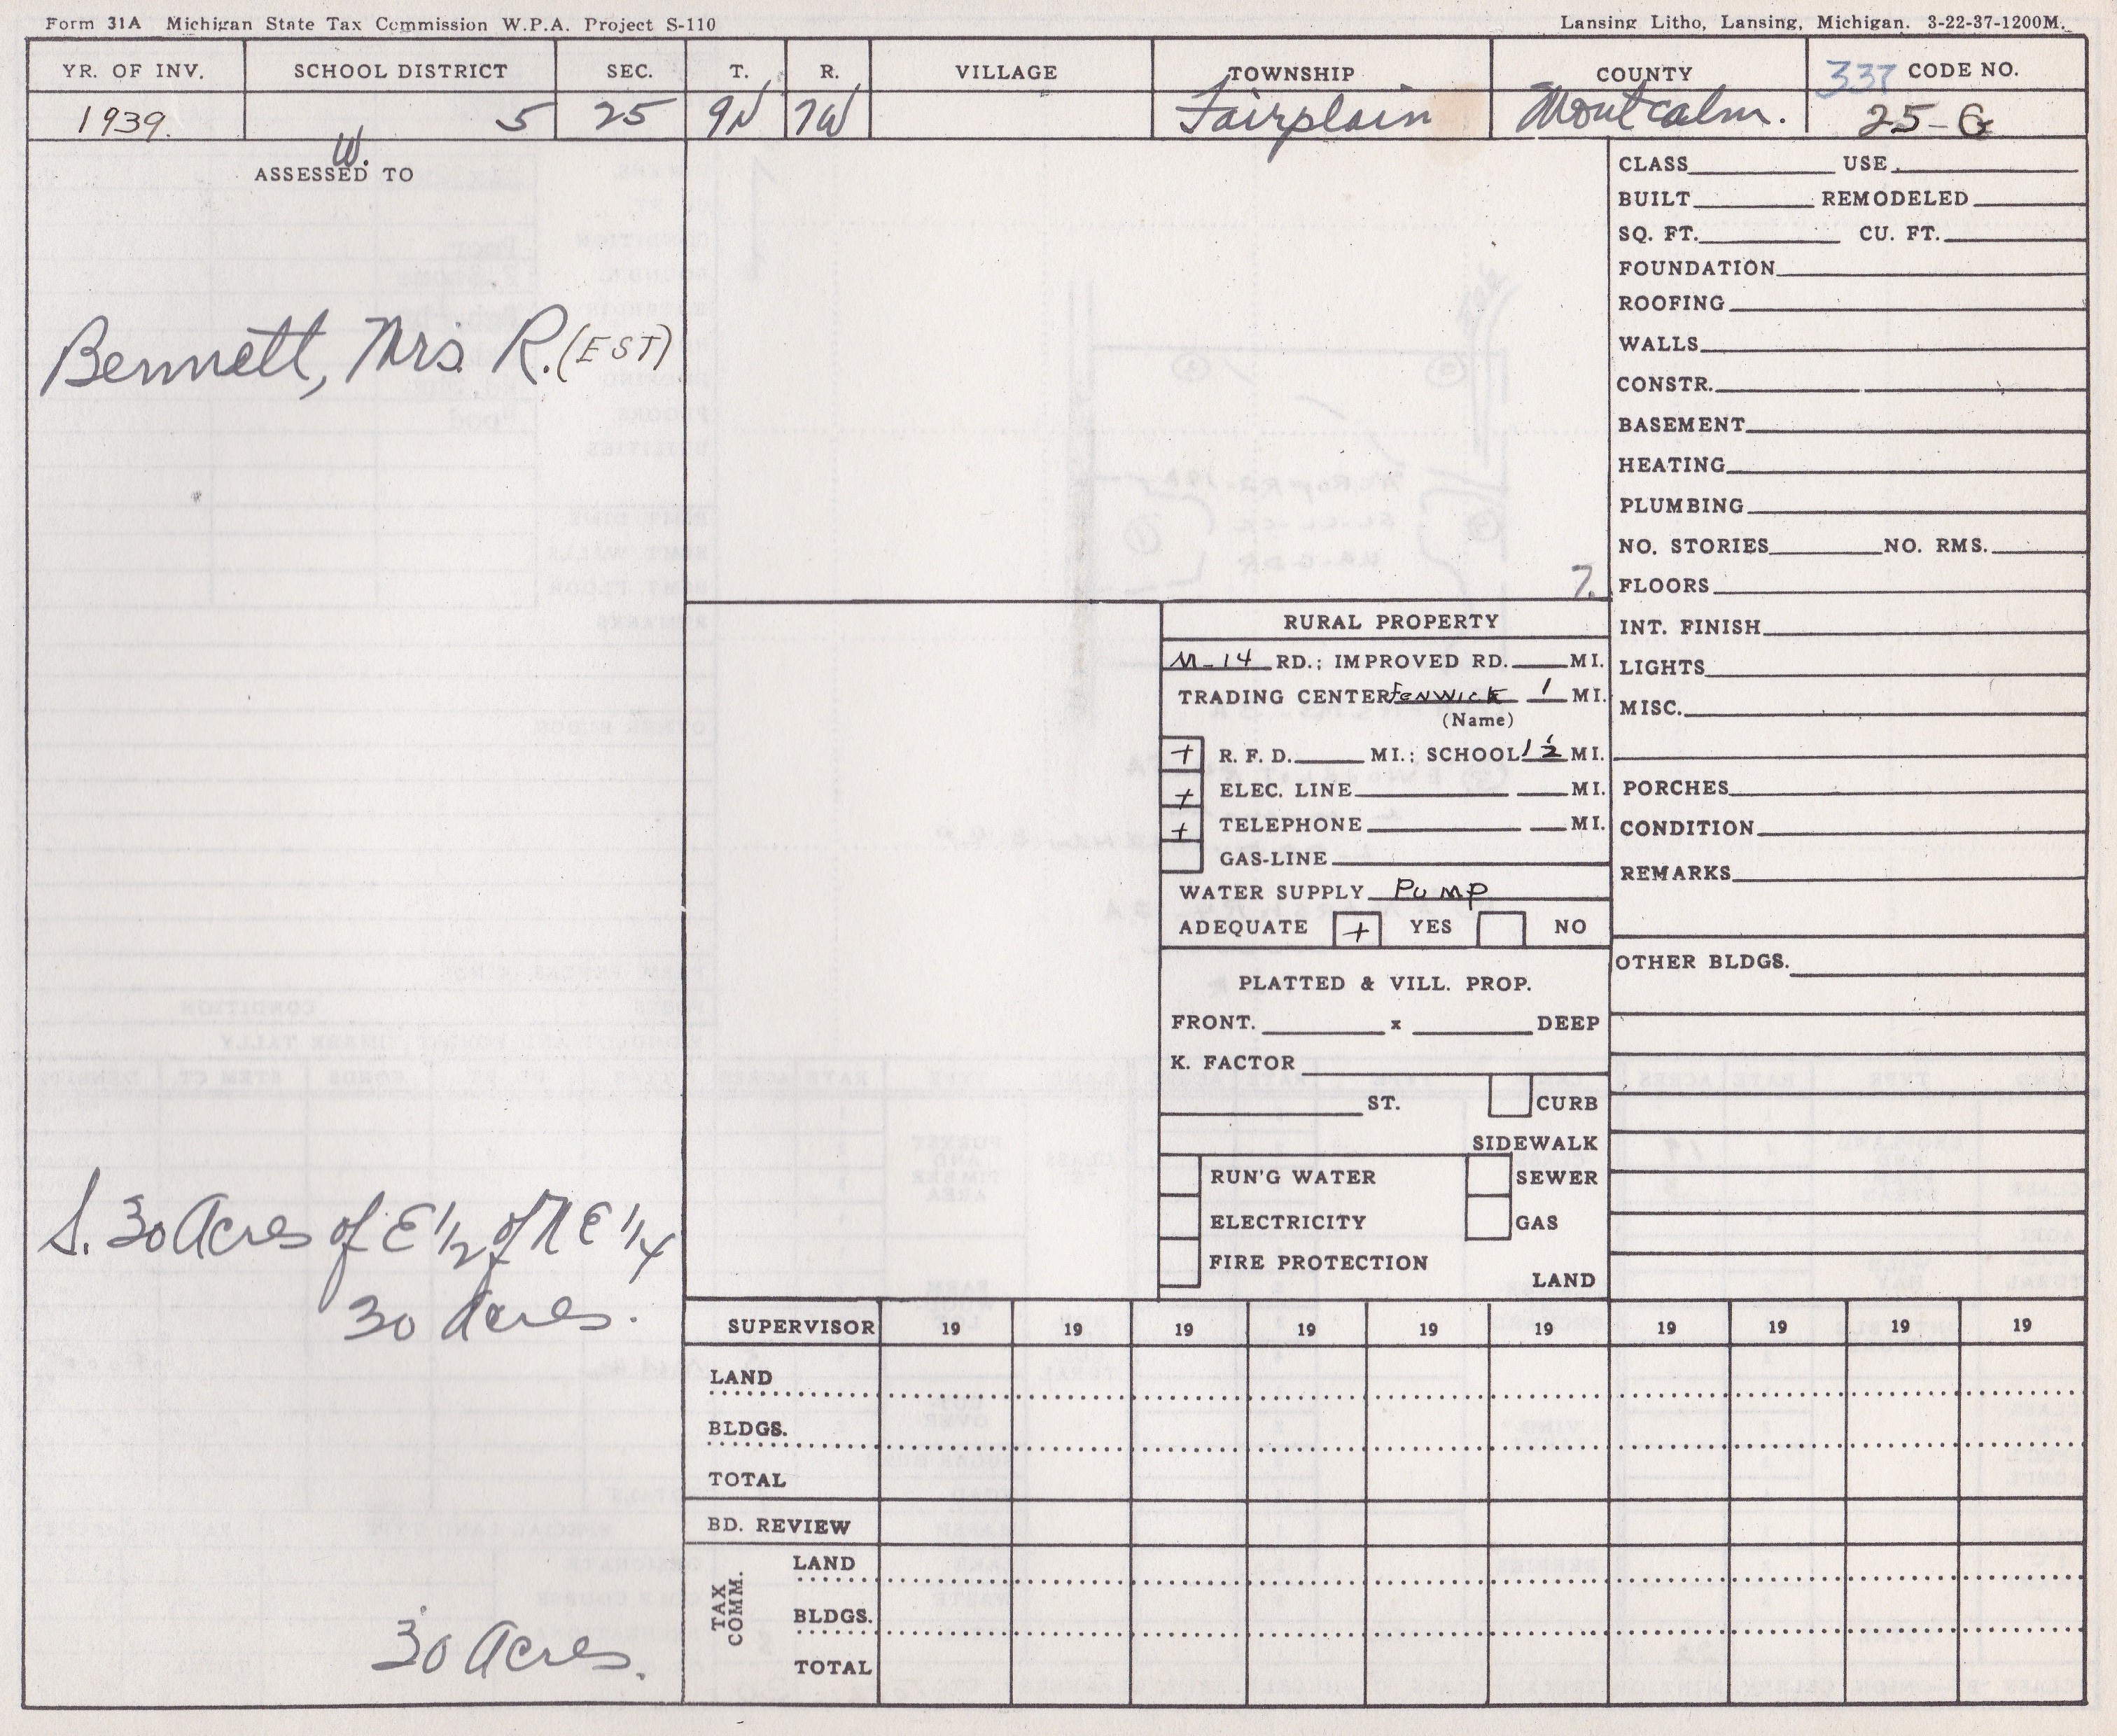 Form 31A Michigan State Tax Commission W.P.A. Project S-110
Lansing Litho, Lansing, Michigan. 3-22-37-1200M.
YR. OF INV. SCHOOL DISTRICT SEC. T. R. VILLAGE TOWNSHIP COUNTY 337 CODE NO.
1939. 5 25 9N 7W Fairplain Montcalm. 25-G
W.
ASSESSED TO
Bennett, Mrs. R. (EST)
S. 30 Acres of E 1/2 of N E 1/4
30 Acres.
30 Acres.
7.
RURAL PROPERTY
M-14 RD.; IMPROVED RD. MI.
TRADING CENTER Fenwick 1 MI.
(Name)
+ R. F. D. MI.; SCHOOL 1 1/2 MI.
+ ELEC. LINE MI.
+ TELEPHONE MI.
GAS-LINE
WATER SUPPLY Pump
ADEQUATE + YES NO
PLATTED & VILL. PROP.
FRONT. x DEEP
K. FACTOR
ST. CURB
SIDEWALK
RUN'G WATER SEWER
ELECTRICITY GAS
FIRE PROTECTION
LAND
CLASS USE
BUILT REMODELED
SQ. FT. CU. FT.
FOUNDATION
ROOFING
WALLS
CONSTR.
BASEMENT
HEATING
PLUMBING
NO. STORIES NO. RMS.
FLOORS
INT. FINISH
LIGHTS
MISC.
PORCHES
CONDITION
REMARKS
OTHER BLDGS.
SUPERVISOR 19 19 19 19 19 19 19 19 19
LAND
BLDGS.
TOTAL
BD. REVIEW
TAX COMM.
LAND
BLDGS.
TOTAL